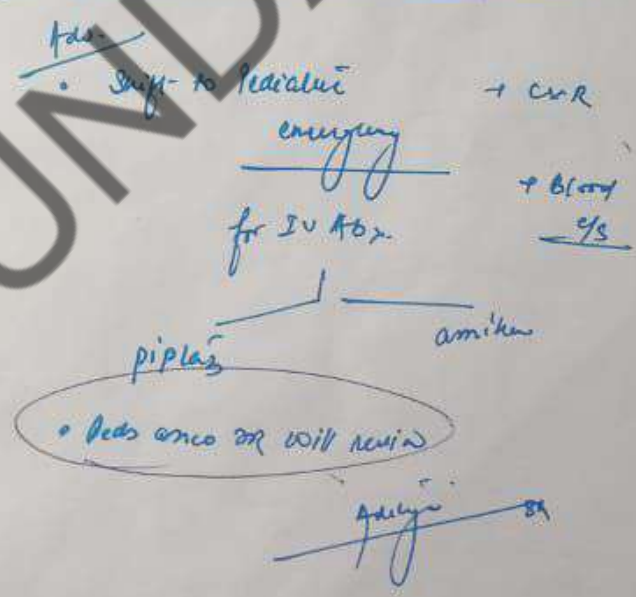 Adv.
• Shift to Pediatric → CxR
emergency
→ Blood
c/s
for IV Abx.
piplaz amikan
• Peds onco SR will review
SR